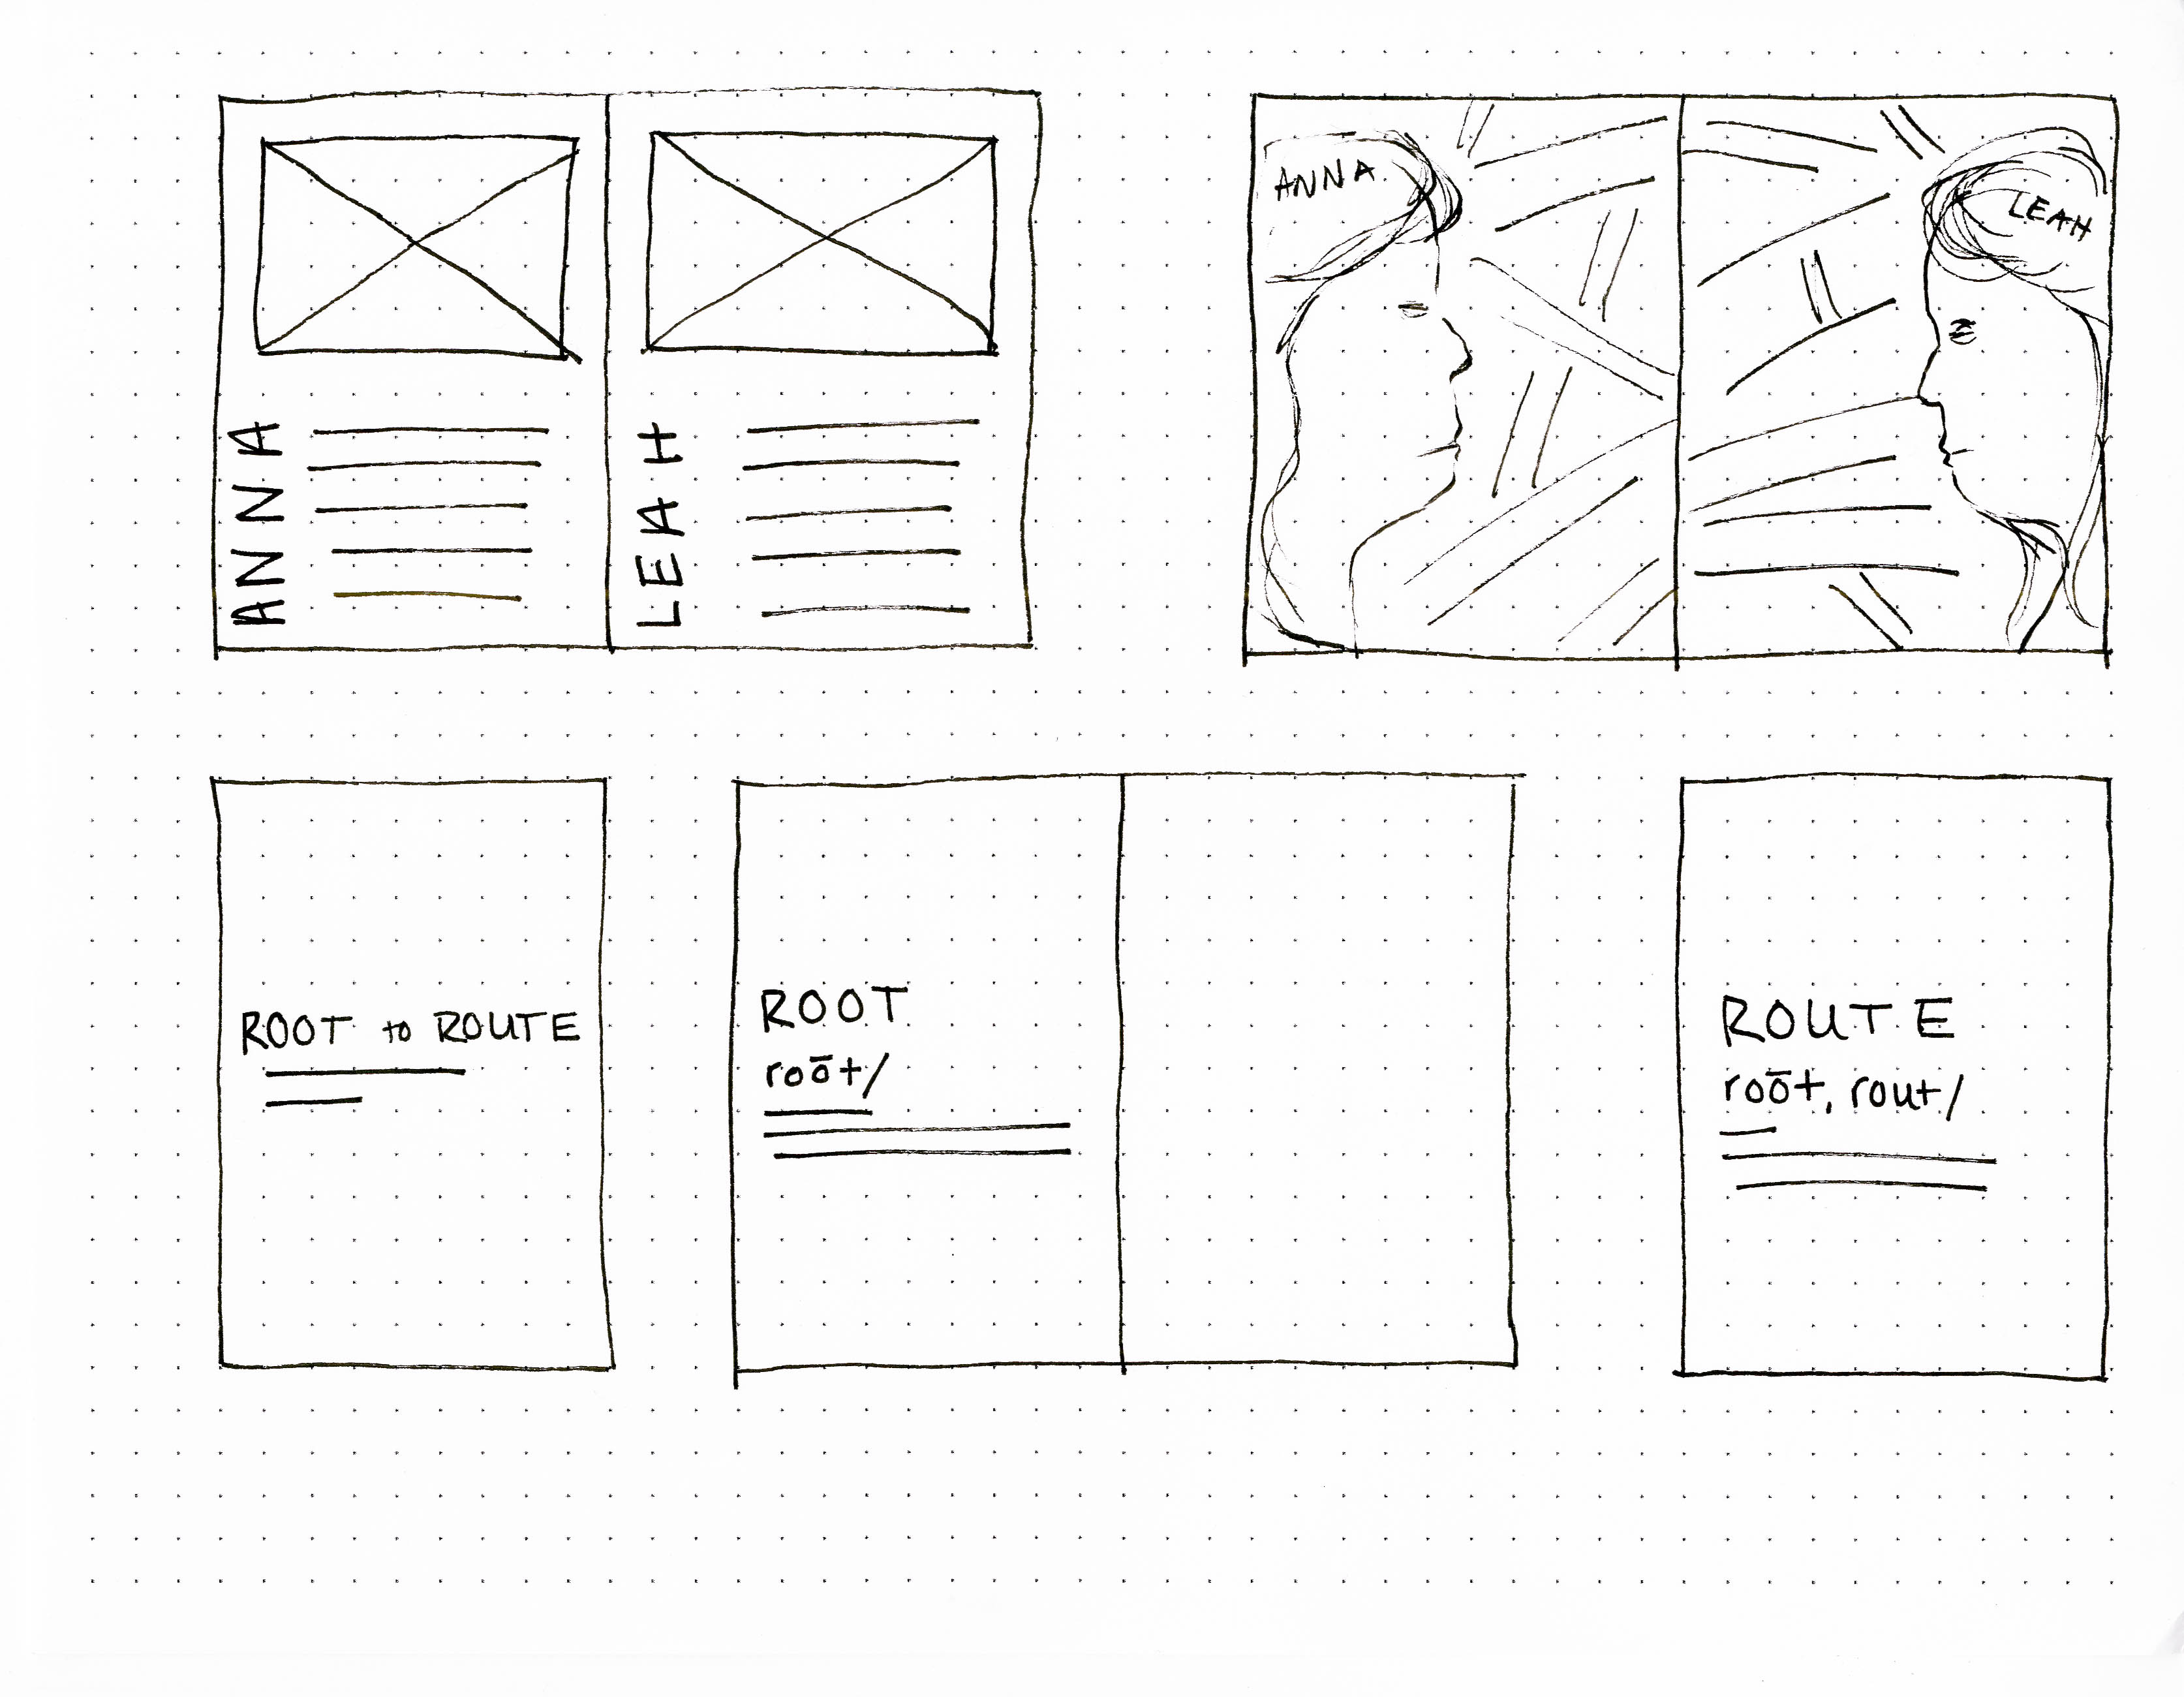 ANNA
LEAH
ANNA
LEAH
ROOT to ROUTE
ROOT
roōt/
ROUTE
roōt, rout/